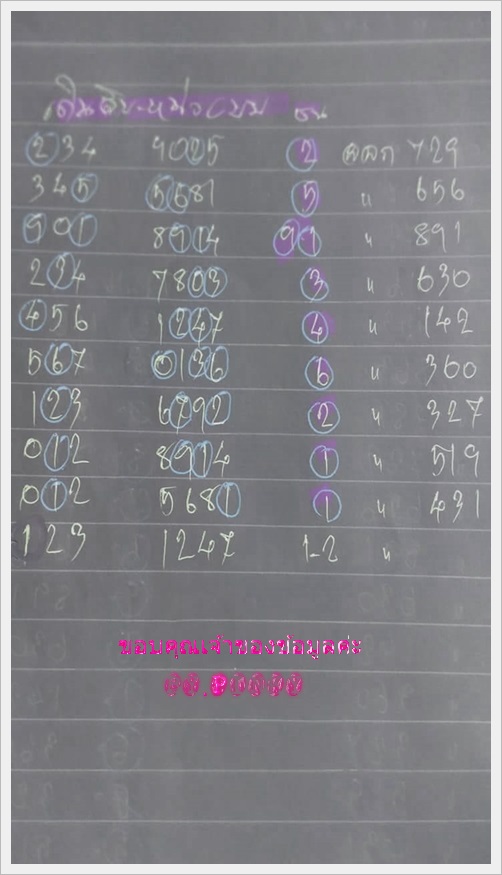 เดินสิบ-หน่วยบน ชน
234 9025 2 ออก 729
345 5681 5 " 656
901 8914 91 " 891
234 7803 3 " 630
456 1247 4 " 142
567 0136 6 " 360
123 6792 2 " 327
012 8914 1 " 519
012 5681 1 " 431
123 1247 1-2 "
ขอบคุณเจ้าของข้อมูลค่ะ